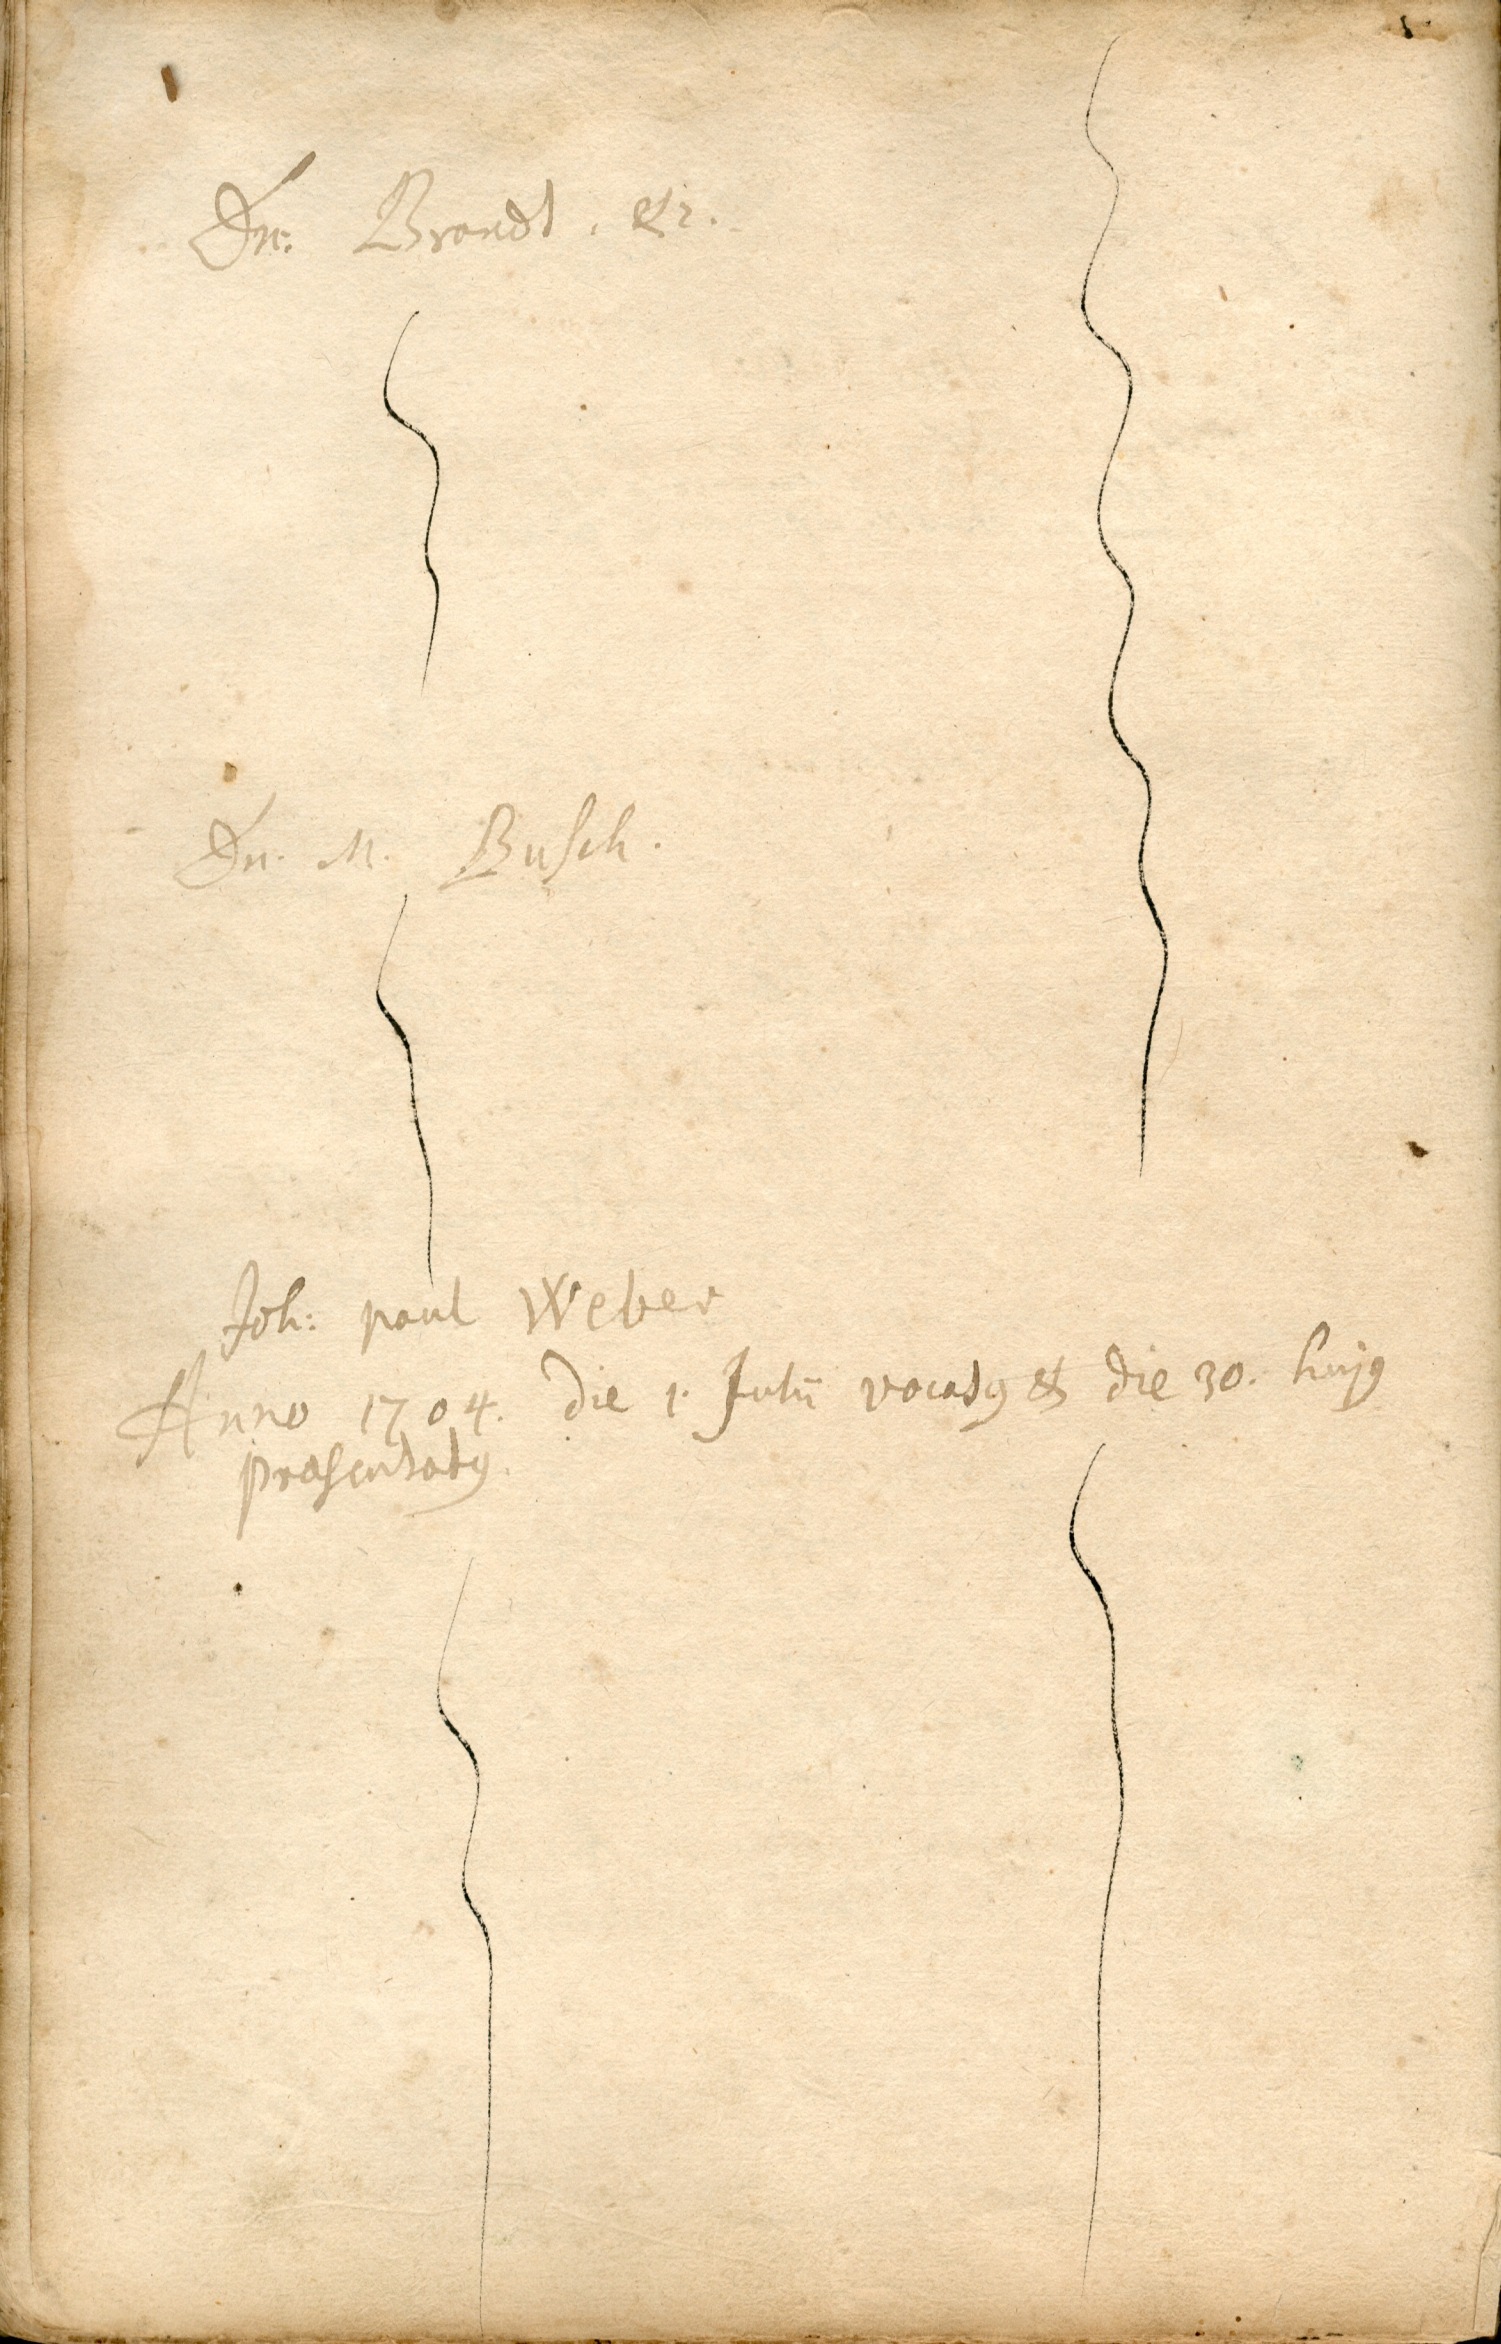 Dn: Brandt. etc.
Dn. M. Busch.
Joh: paul Weber
Anno 1704. die 1. Julii vocatꝰ & die 30. hujꝰ
præsentatꝰ.